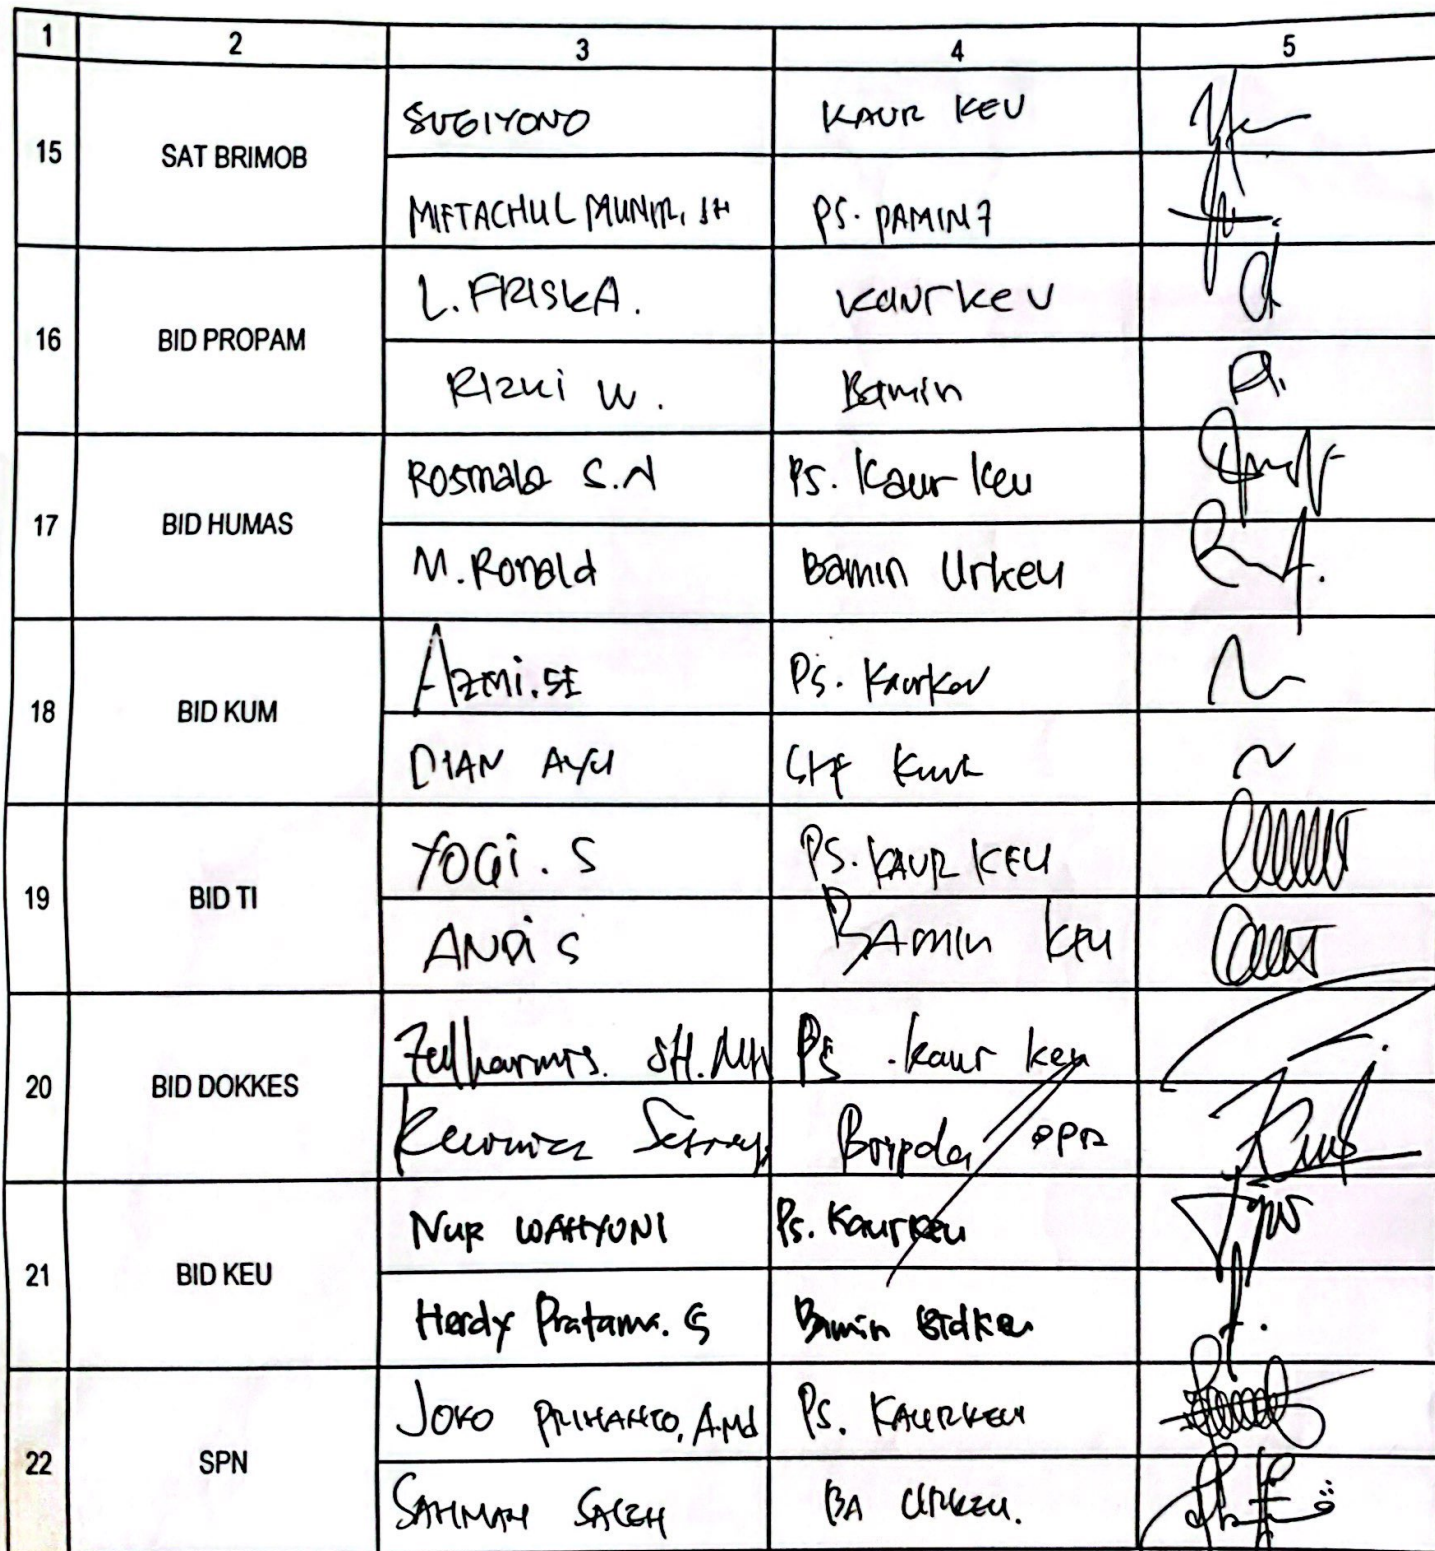 1 2 3 4 5
15 SAT BRIMOB
SUGIYONO KAUR KEU
MIFTACHUL MUNIR, SH PS. PAMIN 7
16 BID PROPAM
L. FRISKA. kaurkeu
Rizki W. Bamin
17 BID HUMAS
Rosmala S.N PS. Kaur Keu
M. Ronald Bamin Urkeu
18 BID KUM
Azmi. SE PS. Kaurkeu
DIAN AYU
19 BID TI
YOGi. S PS. KAUR KEU
ANDi S BAmin KEU
20 BID DOKKES
SH. MH PS. kaur keu
21 BID KEU
NUR WAHYUNI Ps. Kaurkeu
Herdy Pratama. S Bamin Bidkeu
22 SPN
JOKO PRIHANTO, A.Md PS. KAURKEU
SAHMAN SALEH BA URKEU.